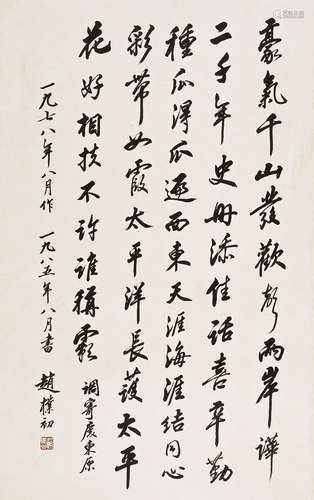 豪氣千山發歡聲兩岸譁
二千年史冊添佳話喜辛勤
種瓜得瓜西東天涯海涯結同心
彩帶如霞太平洋長護太平
花好相扶不許誰稱霸 調寄慶東原
一九七八年八月作 一九八五年八月書 趙樸初